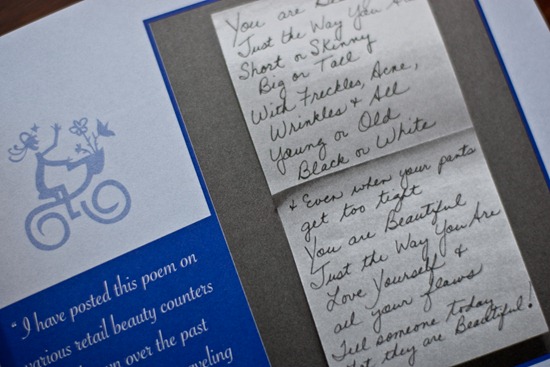 You are
Just the Way You
Short or Skinny
Big or Tall
With Freckles, Acne,
Wrinkles & All
Young or Old
Black or White
& Even when your pants
get too tight
You are Beautiful
Just the Way You Are
Love Yourself &
all your flaws
Tell someone today
they are Beautiful!
“I have posted this poem on
various retail beauty counters
over the past